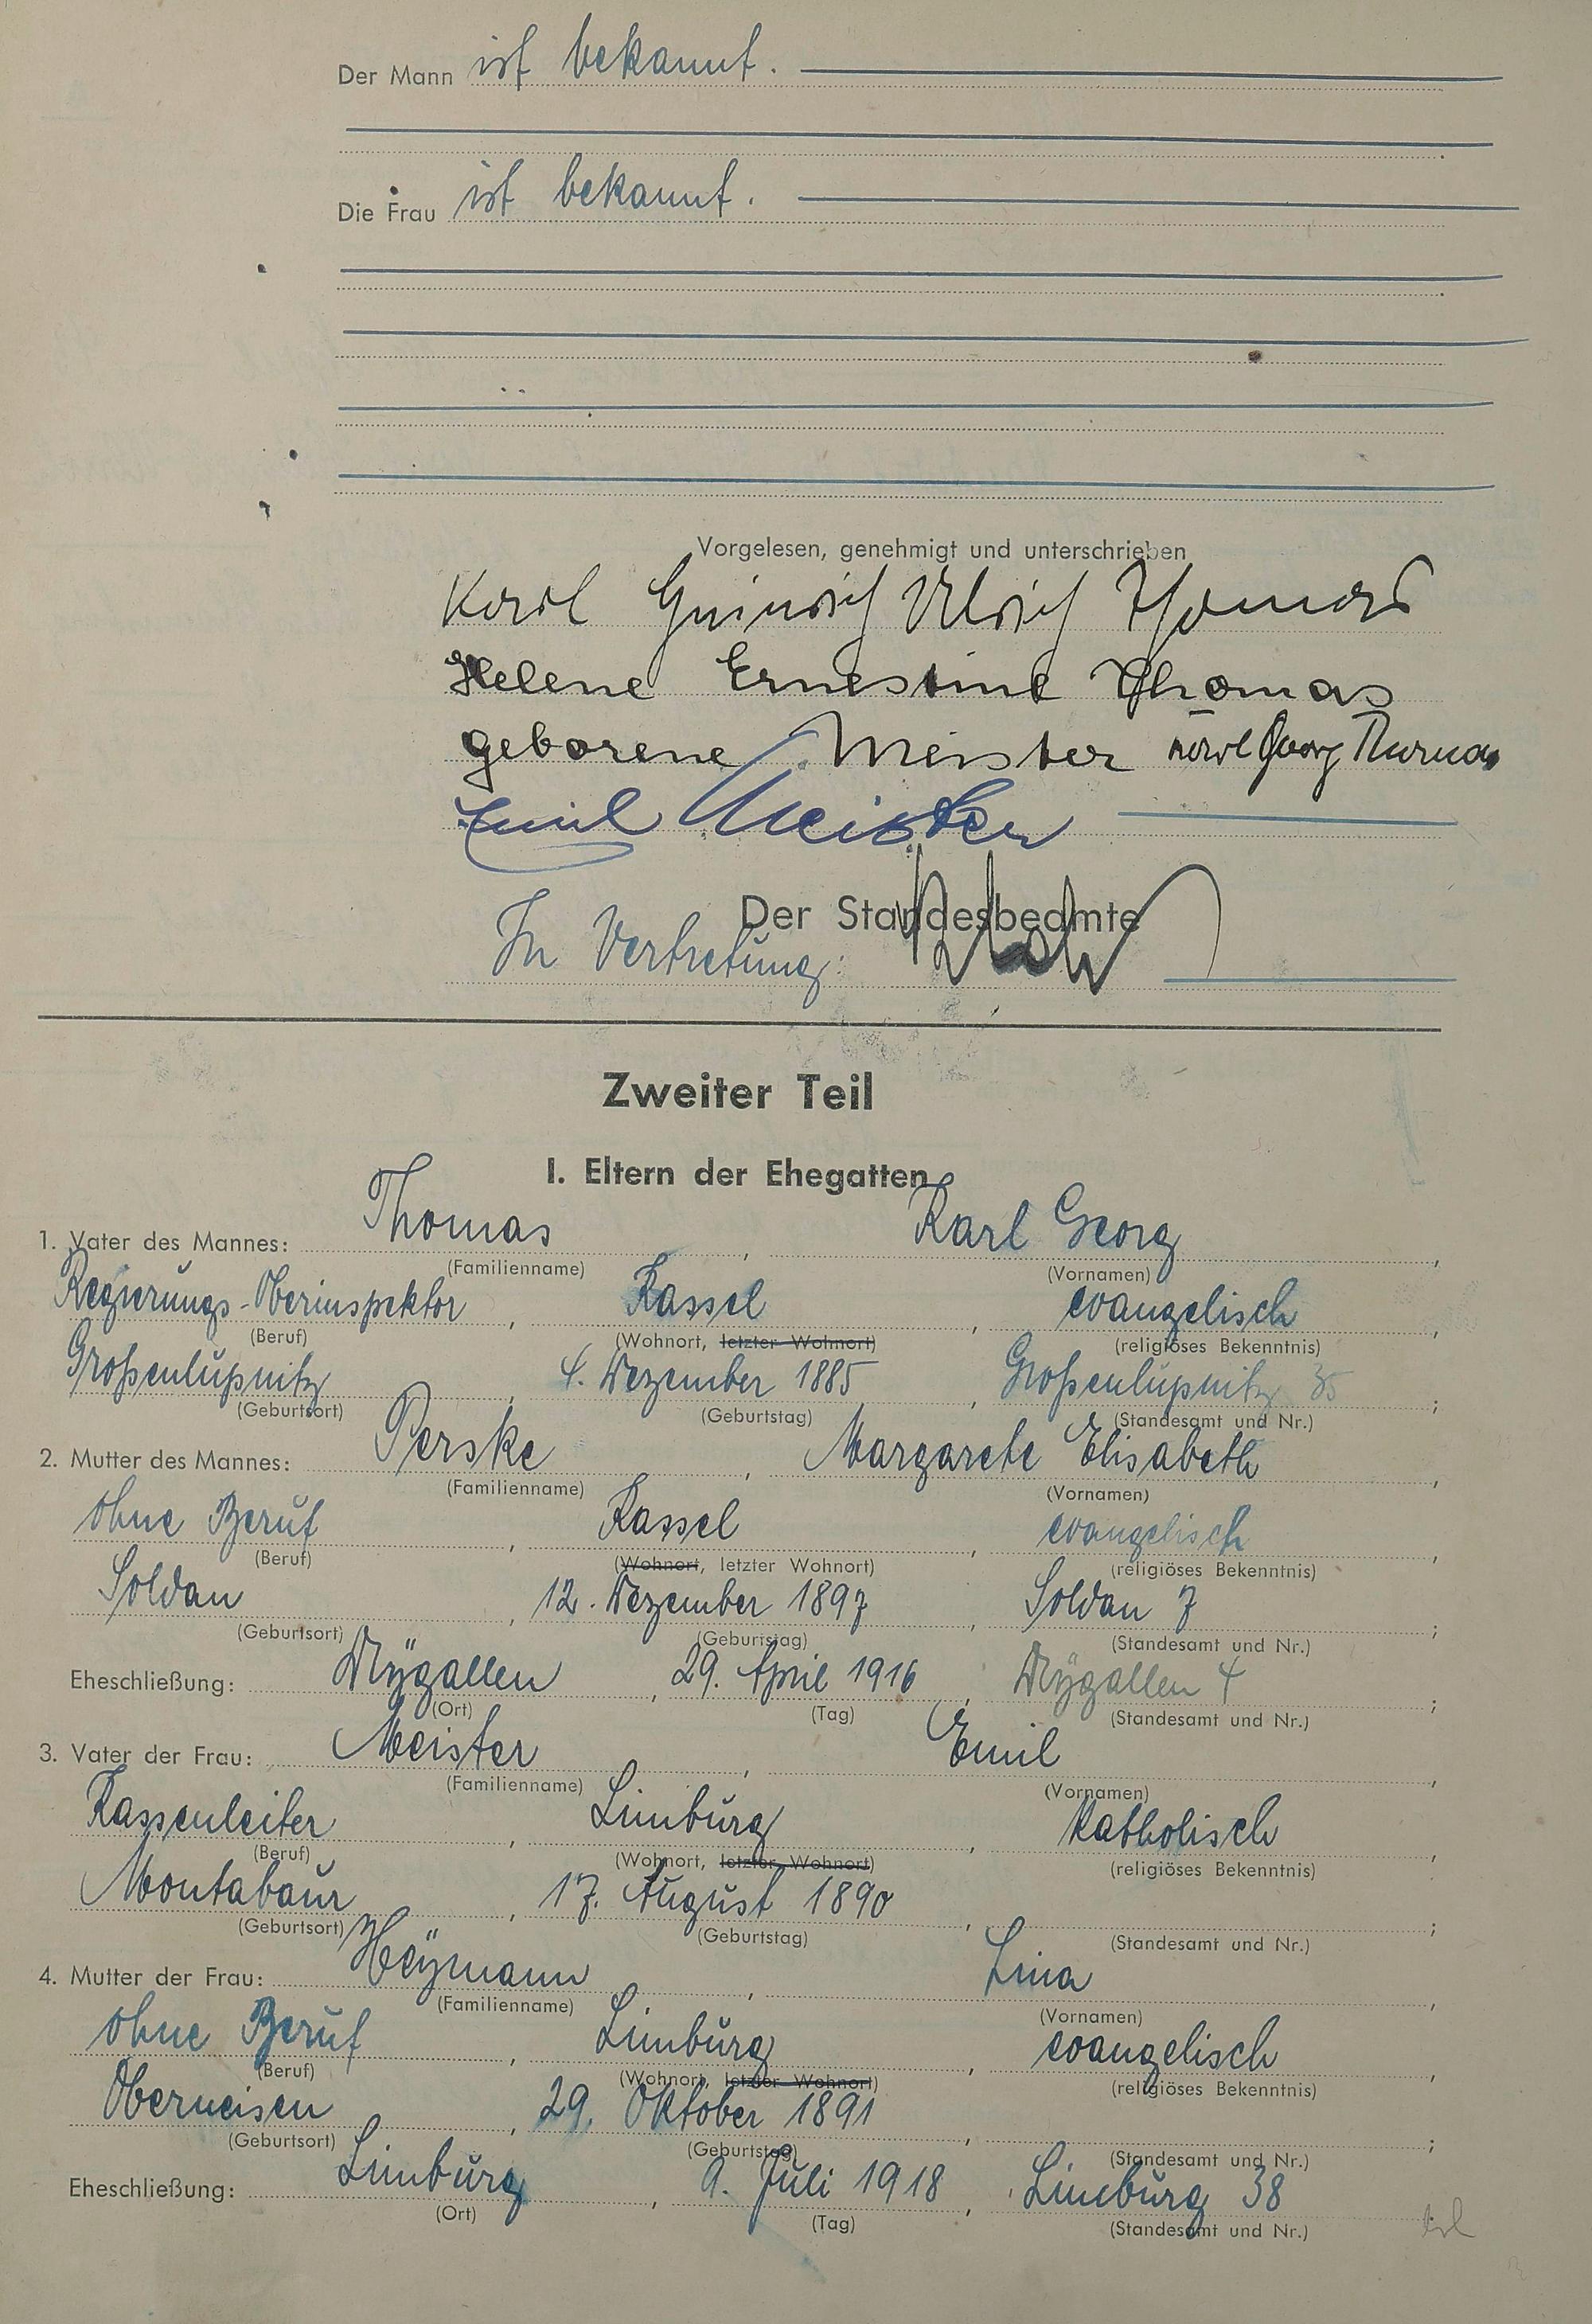 Der Mann ist bekannt.
Die Frau ist bekannt.
Vorgelesen, genehmigt und unterschrieben
Karl Heinrich Ulrich Thomas
Helene Ernestine Thomas
geborene Meister Karl Georg Thomas
Emil Meister
Der Standesbeamte
In Vertretung:
Zweiter Teil
I. Eltern der Ehegatten
1. Vater des Mannes: Thomas, Karl Georg,
(Familienname) (Vornamen)
Regierungs-Oberinspektor, Kassel, evangelisch,
(Beruf) (Wohnort, letzter Wohnort) (religiöses Bekenntnis)
Großenlupnitz, 4. Dezember 1885, Großenlupnitz 35;
(Geburtsort) (Geburtstag) (Standesamt und Nr.)
2. Mutter des Mannes: Perske, Margarete Elisabeth,
(Familienname) (Vornamen)
ohne Beruf, Kassel, evangelisch,
(Beruf) (Wohnort, letzter Wohnort) (religiöses Bekenntnis)
Soldau, 12. Dezember 1897, Soldau 7;
(Geburtsort) (Geburtstag) (Standesamt und Nr.)
Eheschließung: Mÿgallen, 29. April 1916, Mÿgallen 4;
(Ort) (Tag) (Standesamt und Nr.)
3. Vater der Frau: Meister, Emil,
(Familienname) (Vornamen)
Kassenleiter, Limburg, katholisch,
(Beruf) (Wohnort, letzter Wohnort) (religiöses Bekenntnis)
Montabaur, 17. August 1890, ;
(Geburtsort) (Geburtstag) (Standesamt und Nr.)
4. Mutter der Frau: Heÿmann, Lina,
(Familienname) (Vornamen)
ohne Beruf, Limburg, evangelisch,
(Beruf) (Wohnort, letzter Wohnort) (religiöses Bekenntnis)
Oberneisen, 29. Oktober 1891, ;
(Geburtsort) (Geburtstag) (Standesamt und Nr.)
Eheschließung: Limburg, 9. Juli 1918, Limburg 38
(Ort) (Tag) (Standesamt und Nr.)